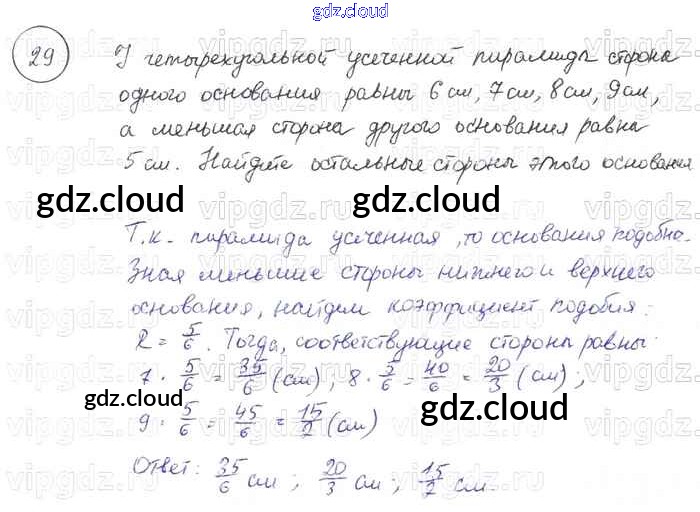 gdz.cloud
29
У четырехугольной усеченной пирамиды сторона
одного основания равны 6 см, 7 см, 8 см, 9 см,
а меньшая сторона другого основания равна
5 см. Найдите остальные стороны этого основания
gdz.cloud gdz.cloud
Т.к. пирамида усеченная, то основания подобна.
Зная меньшие стороны нижнего и верхнего
основания, найдем коэффициент подобия:
k = 5/6. Тогда, соответствующие стороны равны:
7 · 5/6 = 35/6 (см); 8 · 5/6 = 40/6 = 20/3 (см);
gdz.cloud gdz.cloud
9 · 5/6 = 45/6 = 15/2 (см)
Ответ: 35/6 см; 20/3 см; 15/2 см.
vipgdz.ru